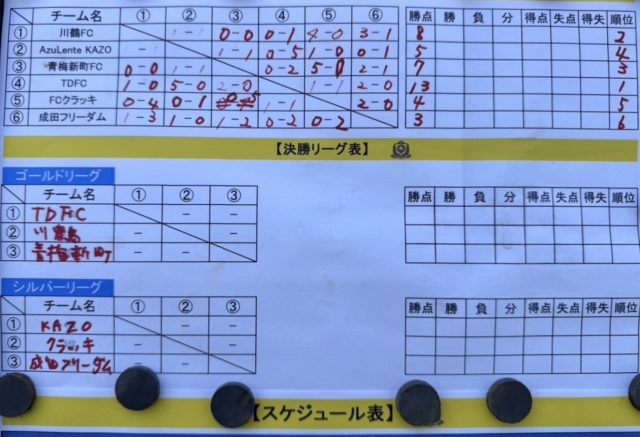 チーム名 ① ② ③ ④ ⑤ ⑥ 勝点 勝 負 分 得点 失点 得失 順位
① 川鶴FC 1-1 0-0 0-1 4-0 3-1 8 2
② AzuLente KAZO 1-1 1-1 0-5 1-0 0-1 5 4
③ 青梅新町FC 0-0 1-1 0-2 5-0 2-1 7 3
④ TDFC 1-0 5-0 2-0 1-1 2-0 13 1
⑤ FCクラッキ 0-4 0-1 0-5 1-1 2-0 4 5
⑥ 成田フリーダム 1-3 1-0 1-2 0-2 0-2 3 6
【決勝リーグ表】
ゴールドリーグ
チーム名 ① ② ③ 勝点 勝 負 分 得点 失点 得失 順位
① TDFC - -
② 川鶴 - -
③ 青梅新町 - -
シルバーリーグ
チーム名 ① ② ③ 勝点 勝 負 分 得点 失点 得失 順位
① KAZO - -
② クラッキ - -
③ 成田フリーダム - -
【スケジュール表】